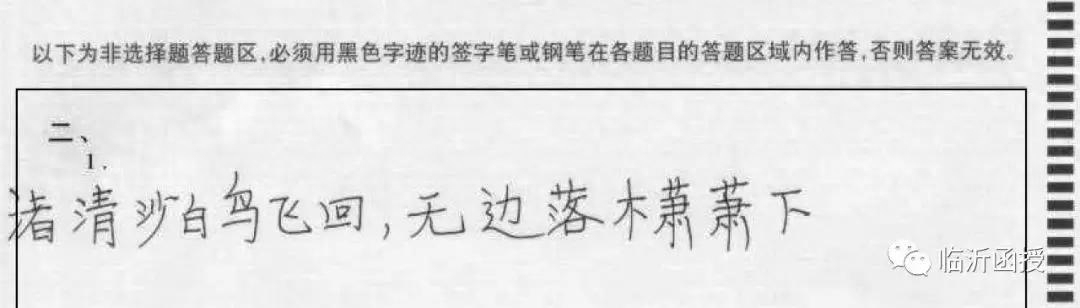 以下为非选择题答题区,必须用黑色字迹的签字笔或钢笔在各题目的答题区域内作答,否则答案无效。
二、
1.
渚清沙白鸟飞回,无边落木萧萧下
临沂函授